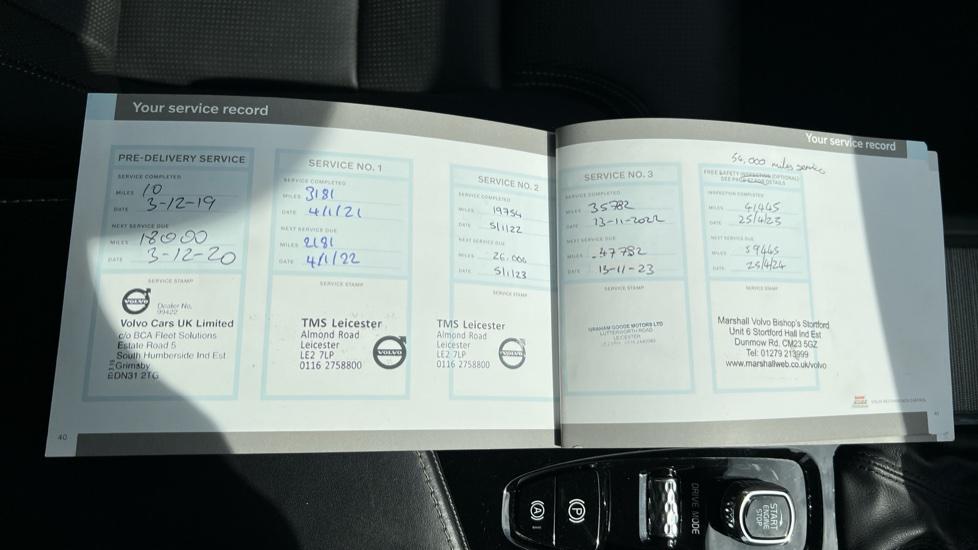 Your service record
PRE-DELIVERY SERVICE
SERVICE COMPLETED
MILES 10
DATE 3-12-19
NEXT SERVICE DUE
MILES 18000
DATE 3-12-20
SERVICE STAMP
VOLVO
Dealer No.
99422
Volvo Cars UK Limited
c/o BCA Fleet Solutions
Estate Road 5
South Humberside Ind Est
Grimsby
DN31 2TG
40
SERVICE NO. 1
SERVICE COMPLETED
MILES 3181
DATE 4/1/21
NEXT SERVICE DUE
MILES 2181
DATE 4/1/22
SERVICE STAMP
TMS Leicester
Almond Road
Leicester
LE2 7LP
0116 2758800
VOLVO
SERVICE NO. 2
SERVICE COMPLETED
MILES 19754
DATE 5/1/22
NEXT SERVICE DUE
MILES 26,000
DATE 5/1/23
SERVICE STAMP
TMS Leicester
Almond Road
Leicester
LE2 7LP
0116 2758800
VOLVO
Your service record
SERVICE NO. 3
SERVICE COMPLETED
MILES 35782
DATE 13-11-2022
NEXT SERVICE DUE
MILES 47782
DATE 13-11-23
SERVICE STAMP
GRAHAM GOODE MOTORS LTD
LUTTERWORTH ROAD
LEICESTER
54,000 miles service
FREE SAFETY INSPECTION (OPTIONAL)
SEE PAGE FOR DETAILS
INSPECTION COMPLETED
MILES 41445
DATE 25/4/23
NEXT SERVICE DUE
MILES 59445
DATE 25/4/24
SERVICE STAMP
Marshall Volvo Bishop's Stortford
Unit 6 Stortford Hall Ind Est
Dunmow Rd, CM23 5GZ
Tel: 01279 213999
www.marshallweb.co.uk/volvo
41
(A)
(P)
DRIVE MODE
START
ENGINE
STOP